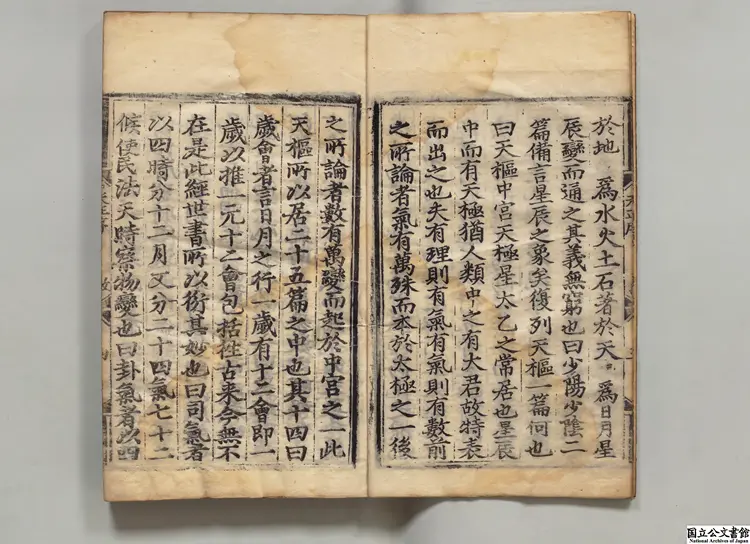 於地爲水火土石著於天爲日月星
辰變而通之其義無窮也曰少陽少陰二
篇備言星辰之象矣復列天樞一篇何也
曰天樞中宮天極星太乙之常居也星辰
中而有天極猶人類中之有大君故特表
而出之也夫有理則有氣有氣則有數前
之所論者氣有萬殊而本於太極之一後
之所論者數有萬變而起於中宮之一此
天樞所以居二十五篇之中也其十四曰
歲會者言日月之行一歲有十二會即一
歲以推一元十二會包括徃古来今無不
在是此經世書所以衍其妙也曰司氣者
以四時分十二月又分二十四氣七十二
候使民法天時察物變也曰卦氣者以四
国立公文書館
National Archives of Japan